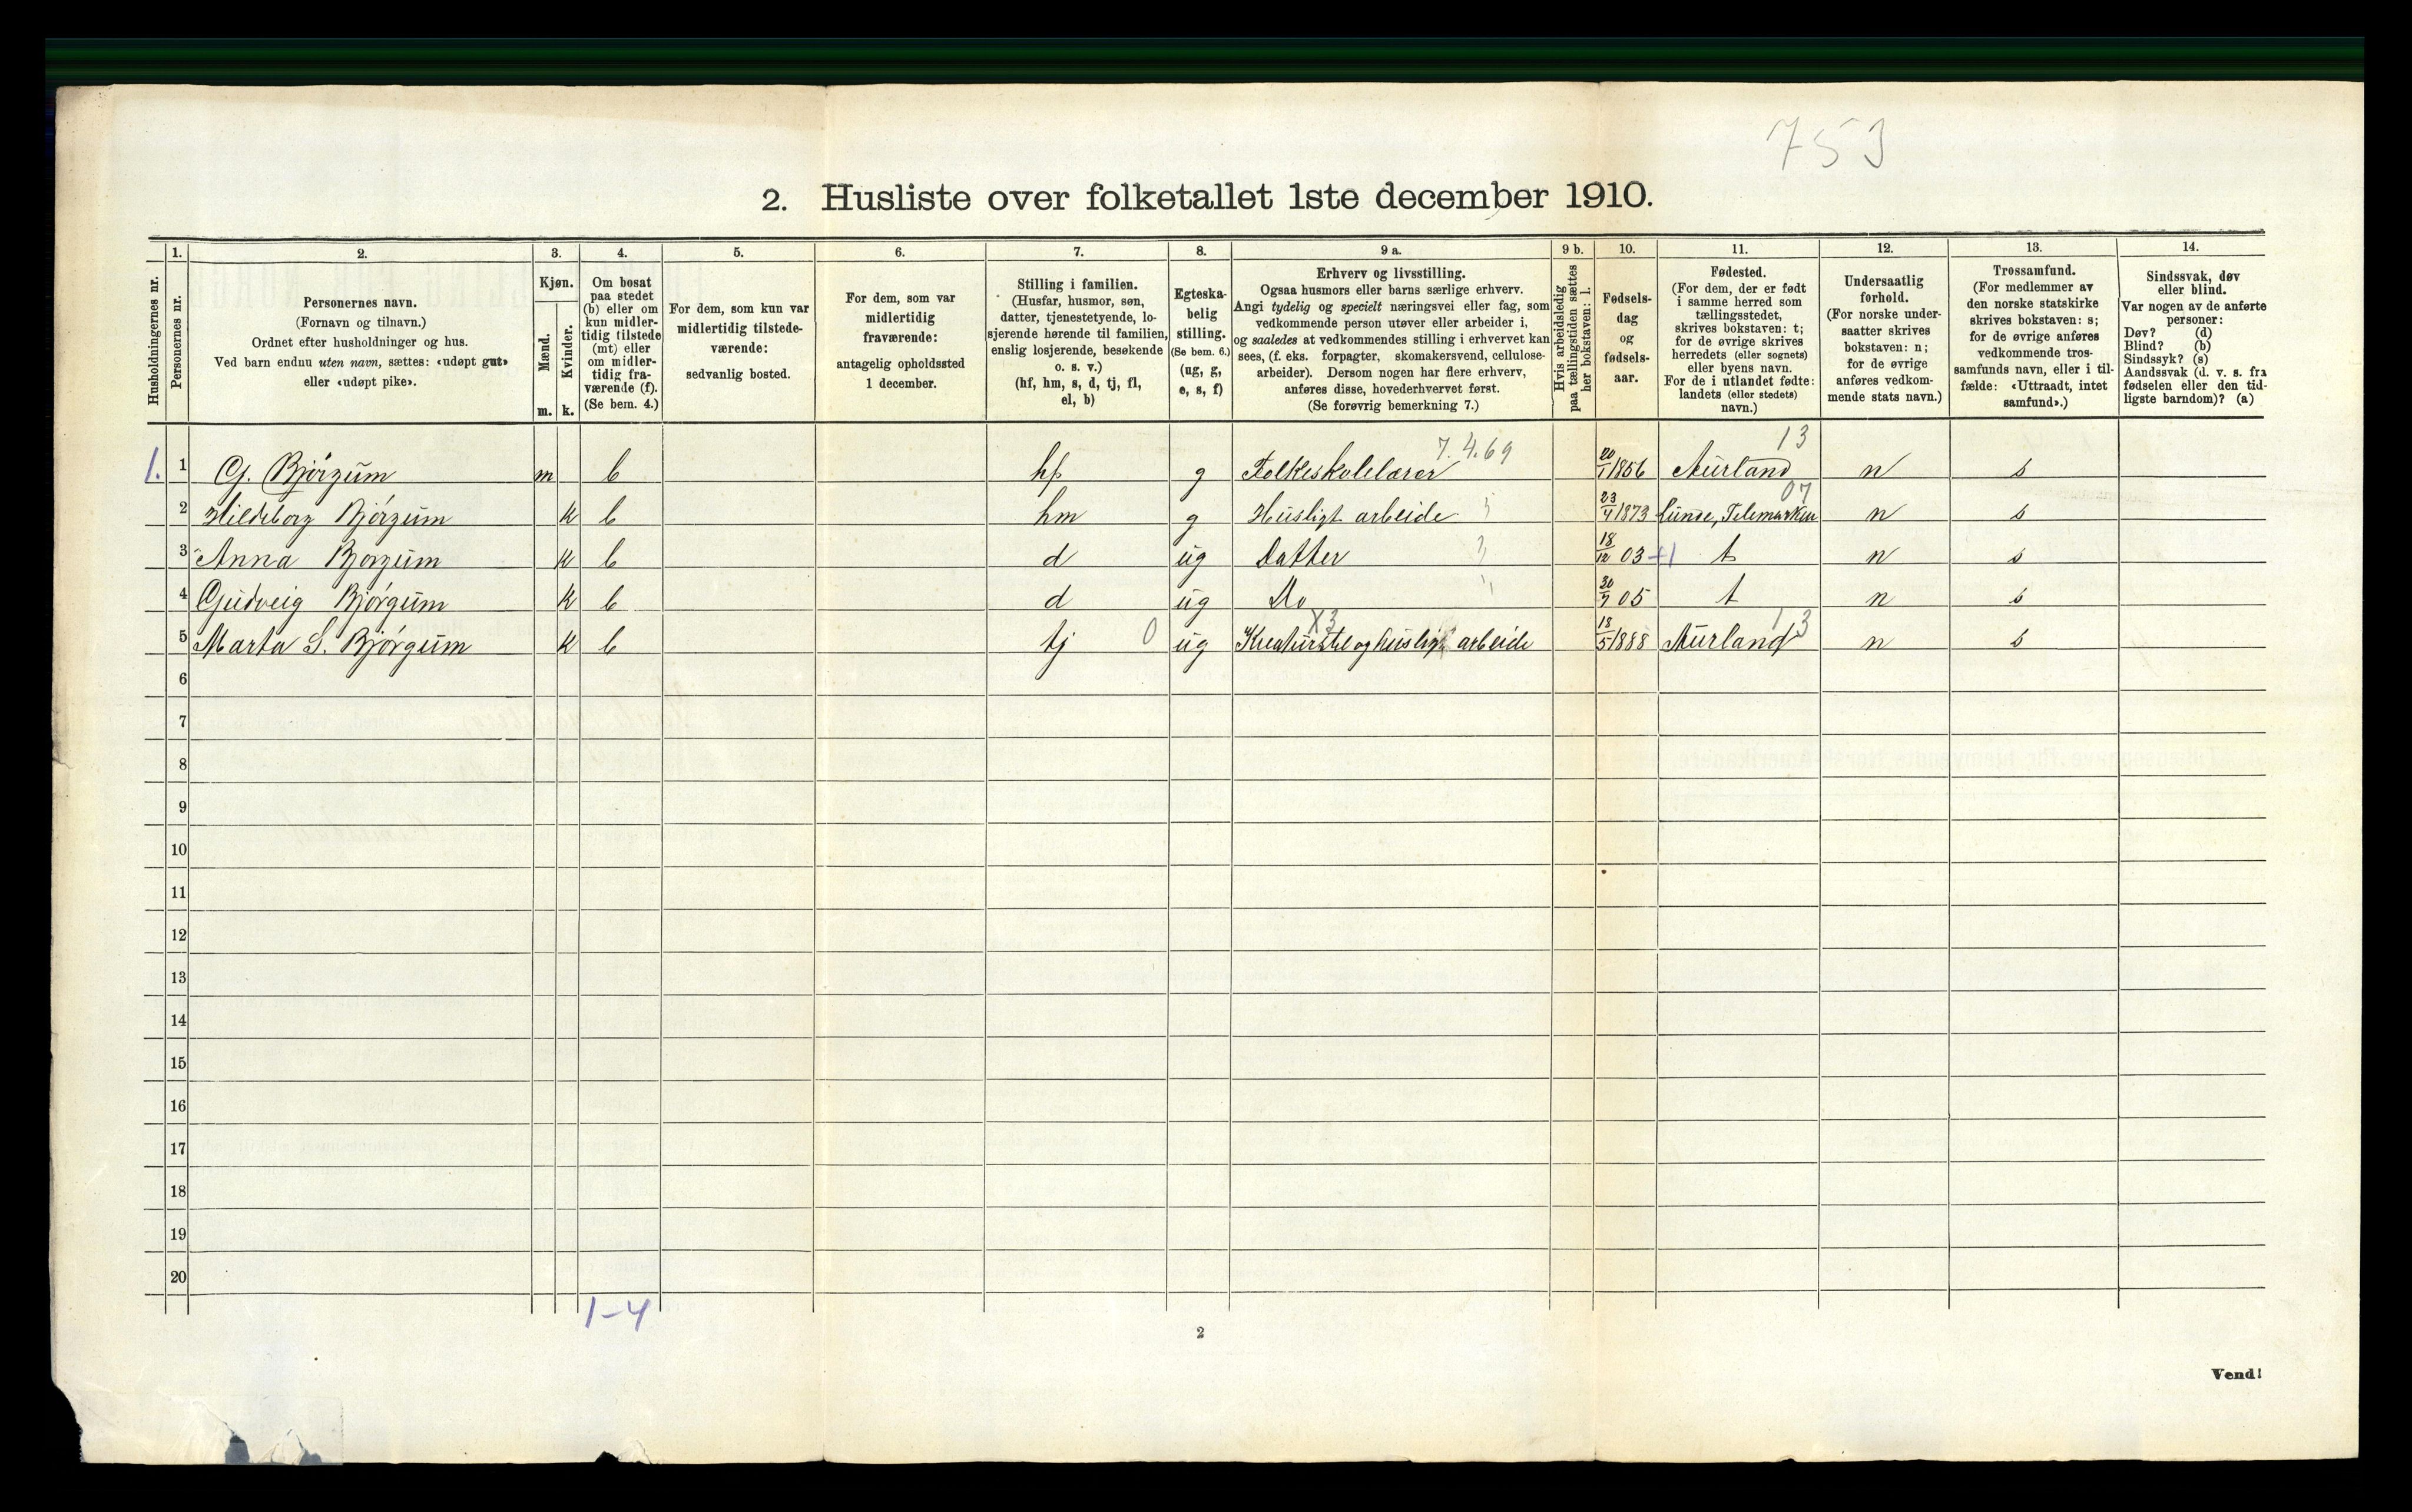 753
2. Husliste over folketallet 1ste december 1910.
Husholdningernes nr.
1.
Personernes nr.
2.
Personernes navn.
(Fornavn og tilnavn.)
Ordnet efter husholdninger og hus.
Ved barn endnu uten navn, sættes: «udøpt gut»
eller «udøpt pike».
3.
Kjøn.
Mænd.
Kvinder.
m. k.
4.
Om bosat
paa stedet
(b) eller om
kun midler-
tidig tilstede
(mt) eller
om midler-
tidig fra-
værende (f).
(Se bem. 4.)
5.
For dem, som kun var
midlertidig tilstede-
værende:
sedvanlig bosted.
6.
For dem, som var
midlertidig
fraværende:
antagelig opholdssted
1 december.
7.
Stilling i familien.
(Husfar, husmor, søn,
datter, tjenestetyende, lo-
sjerende hørende til familien,
enslig losjerende, besøkende
o. s. v.)
(hf, hm, s, d, tj, fl,
el, b)
8.
Egteska-
belig
stilling.
(Se bem. 6.)
(ug, g,
e, s, f)
9 a.
Erhverv og livsstilling.
Ogsaa husmors eller barns særlige erhverv.
Angi tydelig og specielt næringsvei eller fag, som
vedkommende person utøver eller arbeider i,
og saaledes at vedkommendes stilling i erhvervet kan
sees, (f. eks. forpagter, skomakersvend, cellulose-
arbeider). Dersom nogen har flere erhverv,
anføres disse, hovederhvervet først.
(Se forøvrig bemerkning 7.)
9 b.
Hvis arbeidsledig
paa tællingstiden sættes
her bokstaven: l.
10.
Fødsels-
dag
og
fødsels-
aar.
11.
Fødested.
(For dem, der er født
i samme herred som
tællingsstedet,
skrives bokstaven: t;
for de øvrige skrives
herredets (eller sognets)
eller byens navn.
For de i utlandet fødte:
landets (eller stedets)
navn.)
12.
Undersaatlig
forhold.
(For norske under-
saatter skrives
bokstaven: n;
for de øvrige
anføres vedkom-
mende stats navn.)
13.
Trossamfund.
(For medlemmer av
den norske statskirke
skrives bokstaven: s;
for de øvrige anføres
vedkommende tros-
samfunds navn, eller i til-
fælde: «Uttraadt, intet
samfund».)
14.
Sindssvak, døv
eller blind.
Var nogen av de anførte
personer:
Døv? (d)
Blind? (b)
Sindssyk? (s)
Aandssvak (d. v. s. fra
fødselen eller den tid-
ligste barndom)? (a)
7.4.69 13
1. 1 G. Bjørgum m b hf g Folkeskolelærer 20/1 1856 Aurland n s
07
2 Hildeborg Bjørgum k b hm g Husligt arbeide 23/4 1873 Lunde, Telemarken n s
3 Anna Bjørgum k b d ug Datter 18/12 03 +1 t n s
4 Gudveig Bjørgum k b d ug Do 30/9 05 t n s
X3 13
5 Marta S. Bjørgum k b tj 0 ug Kreaturstel og husligt arbeide 18/5 1888 Aurland n s
6
7
8
9
10
11
12
13
14
15
16
17
18
19
20
1-4
2
Vend!